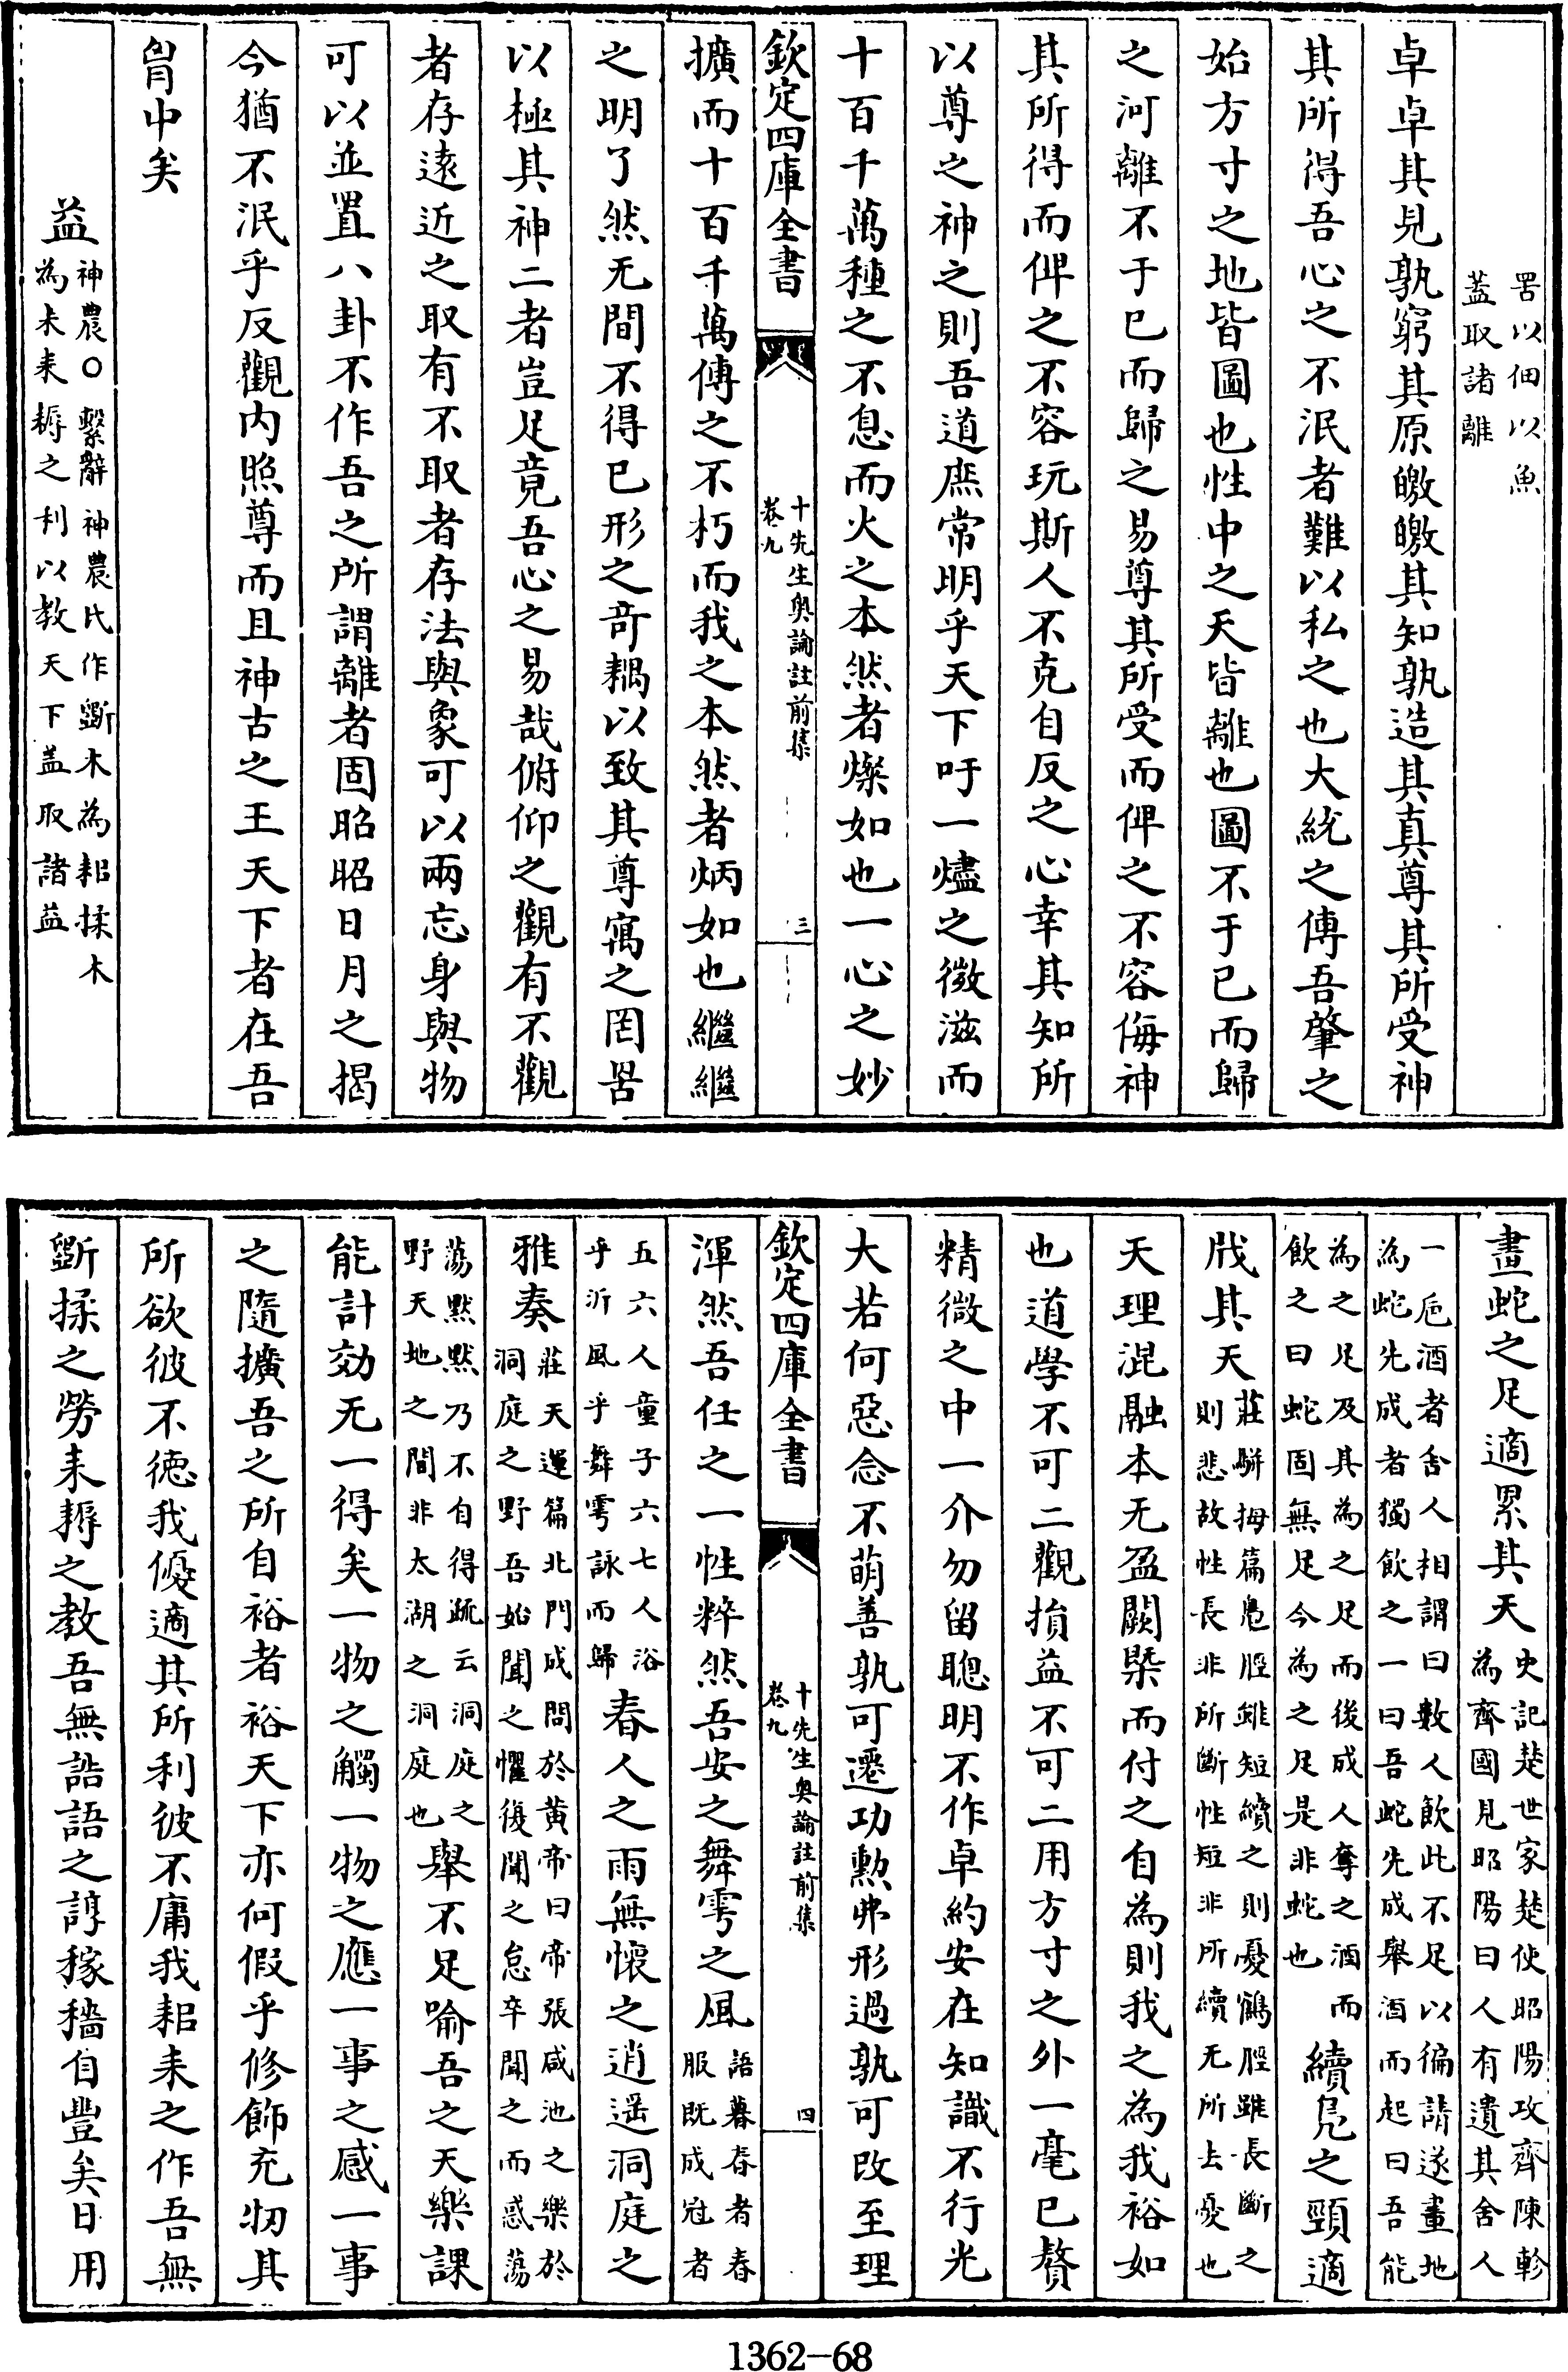 罟以佃以魚
蓋取諸離
卓卓其見孰窮其原皦皦其知孰造其真尊其所受神
其所得吾心之不泯者難以私之也大統之傳吾肇之
始方寸之地皆圖也性中之天皆離也圖不于已而歸
之河離不于已而歸之易尊其所受而俾之不容侮神
其所得而俾之不容玩斯人不克自反之心幸其知所
以尊之神之則吾道庶常明乎天下吁一燼之微滋而
十百千萬種之不息而火之本然者燦如也一心之妙
欽定四庫全書
十先生奥論註前集
卷九
三
擴而十百千萬傳之不朽而我之本然者炳如也繼繼
之明了然无間不得已形之竒耦以致其尊寓之罔罟
以極其神二者豈足竟吾心之易哉俯仰之觀有不觀
者存遠近之取有不取者存法與象可以兩忘身與物
可以並置八卦不作吾之所謂離者固昭昭日月之揭
今猶不泯乎反觀内照尊而且神古之王天下者在吾
胷中矣
益
神農○繫辭神農氏作斲木為耜揉木
為耒耒耨之利以教天下盖取諸益
畫蛇之足適累其天
史記楚世家楚使昭陽攻齊陳軫
為齊國見昭陽曰人有遺其舍人
一巵酒者舍人相謂曰數人飲此不足以徧請遂畫地
為蛇先成者獨飲之一曰吾蛇先成舉酒而起曰吾能
為之足及其為之足而後成人奪之酒而
飲之曰蛇固無足今為之足是非蛇也
續鳬之頸適
戕其天
莊駢拇篇鳬脛雖短續之則憂鶴脛雖長斷之
則悲故性長非所斷性短非所續无所去憂也
天理混融本无盈闕槩而付之自為則我之為我裕如
也道學不可二觀損益不可二用方寸之外一毫已贅
精微之中一介勿留聰明不作卓約安在知識不行光
大若何惡念不萌善孰可遷功勲弗形過孰可改至理
欽定四庫全書
十先生奥論註前集
卷九
四
渾然吾任之一性粹然吾安之舞雩之風
語暮春者春
服既成冠者
五六人童子六七人浴
乎沂風乎舞雩詠而歸
春人之雨無懷之逍遥洞庭之
雅奏
莊天運篇北門成問於黄帝曰帝張咸池之樂於
洞庭之野吾始聞之懼復聞之怠卒聞之而惑蕩
蕩默默乃不自得疏云洞庭之
野天地之間非太湖之洞庭也
舉不足喻吾之天樂課
能計効无一得矣一物之觸一物之應一事之感一事
之隨擴吾之所自裕者裕天下亦何假乎修飾充牣其
所欲彼不徳我優適其所利彼不庸我耜耒之作吾無
斲揉之勞耒耨之教吾無誥語之諄稼穡自豐矣日用